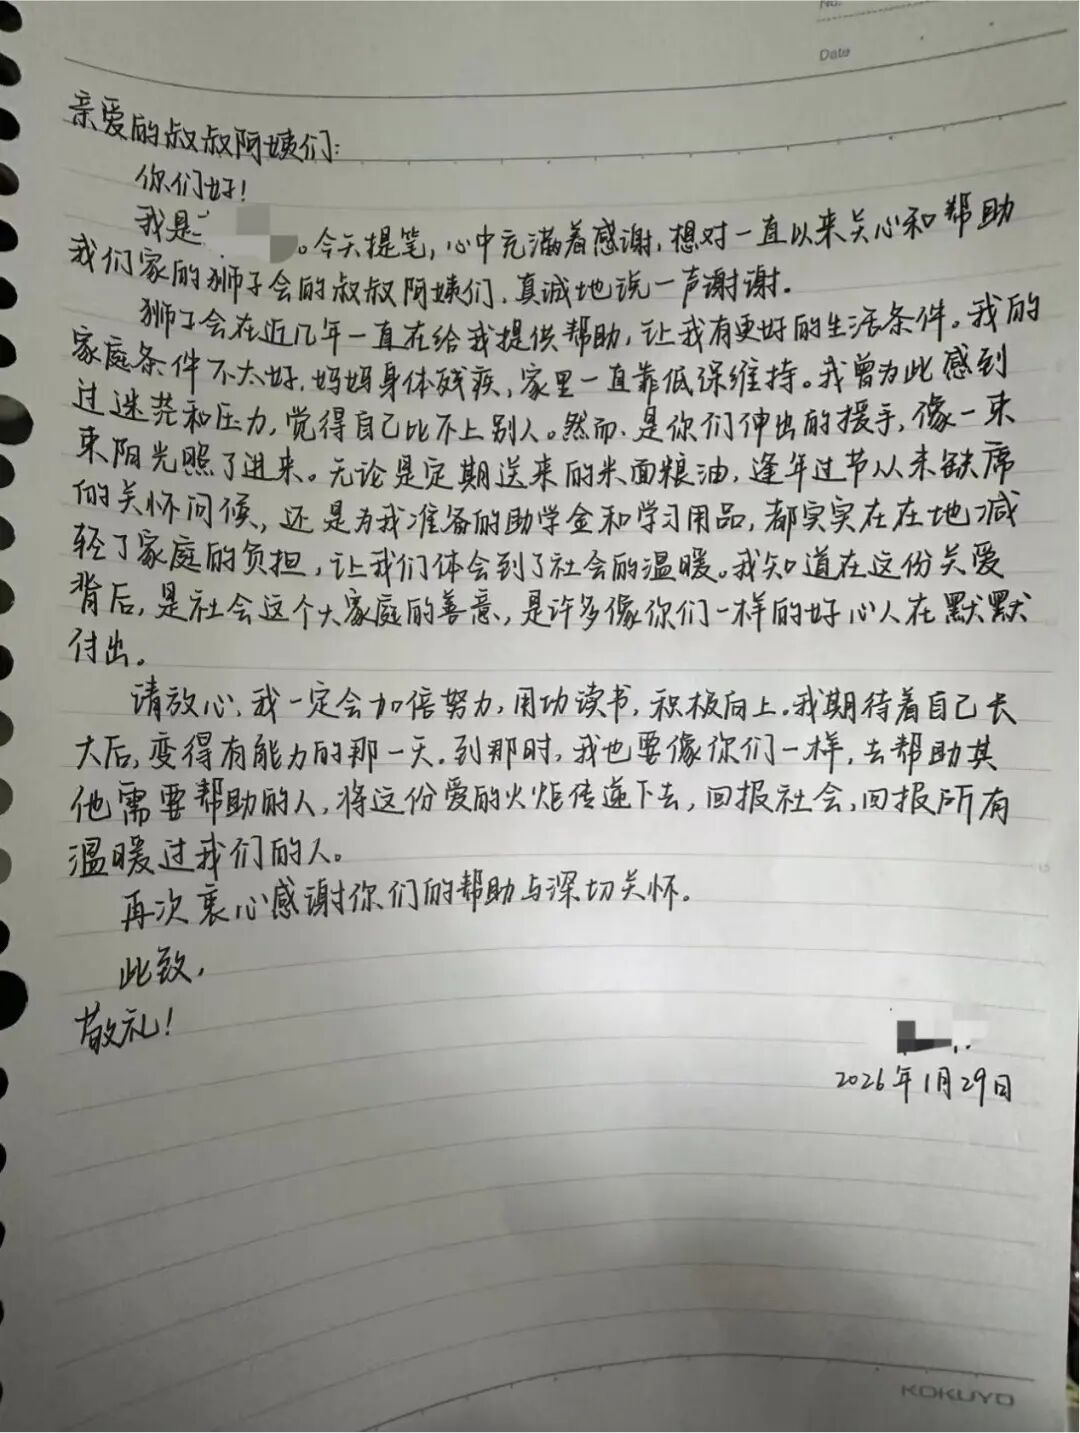 No.
Date
亲爱的叔叔阿姨们:
你们好!
我是 。今天提笔,心中充满着感谢,想对一直以来关心和帮助
我们家的狮子会的叔叔阿姨们,真诚地说一声谢谢.
狮子会在近几年一直在给我提供帮助,让我有更好的生活条件。我的
家庭条件不太好,妈妈身体残疾,家里一直靠低保维持。我曾为此感到
过迷茫和压力,觉得自己比不上别人。然而,是你们伸出的援手,像一束
束阳光照了进来。无论是定期送来的米面粮油,逢年过节从未缺席
的关怀问候,还是为我准备的助学金和学习用品,都实实在在地减
轻了家庭的负担,让我们体会到了社会的温暖。我知道在这份关爱
背后,是社会这个大家庭的善意,是许多像你们一样的好心人在默默
付出。
请放心,我一定会加倍努力,用功读书,积极向上.我期待着自己长
大后,变得有能力的那一天.到那时,我也要像你们一样,去帮助其
他需要帮助的人,将这份爱的火炬传递下去,回报社会,回报所有
温暖过我们的人。
再次衷心感谢你们的帮助与深切关怀.
此致,
敬礼!
2026年1月29日
KOKUYO